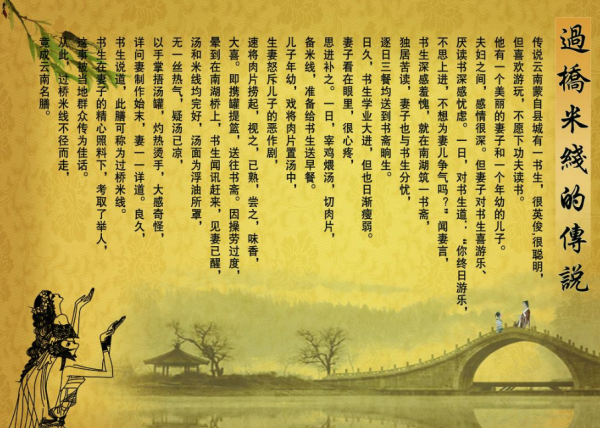 過橋米綫的傳説
传说云南蒙自县城有一书生，很英俊，很聪明，
但喜欢游玩，不愿下功夫读书。
他有一个美丽的妻子和一个年幼的儿子。
夫妇之间，感情很深。但妻子对书生喜游乐、
厌读书深感忧虑。一日，对书生道：“你终日游乐，
不思上进，不想为妻儿争气吗？”闻妻言，
书生深感羞愧，就在南湖筑一书斋，
独居苦读，妻子也与书生分忧，
逐日三餐均送到书斋晌生。
日久，书生学业大进，但也日渐瘦弱。
妻子看在眼里，很心疼，
思进补之。一日，宰鸡煨汤，切肉片，
备米线，准备给书生送早餐。
儿子年幼，戏将肉片置汤中，
生妻怒斥儿子的恶作剧，
速将肉片捞起，视之，已熟，尝之，味香，
大喜。即携罐提篮，送往书斋。因操劳过度，
晕到在南湖桥上，书生闻讯赶来，见妻已醒，
汤和米线均完好，汤面为浮油所罩，
无一丝热气，疑汤已凉，
以手掌捂汤罐，灼热烫手，大感奇怪，
详问妻制作始末，妻一一详道。良久，
书生说道，此膳可称为过桥米线。
书生在妻子的精心照料下，考取了举人，
这事被当地群众传为佳话。
从此，过桥米线不径而走，
竟成云南名膳。